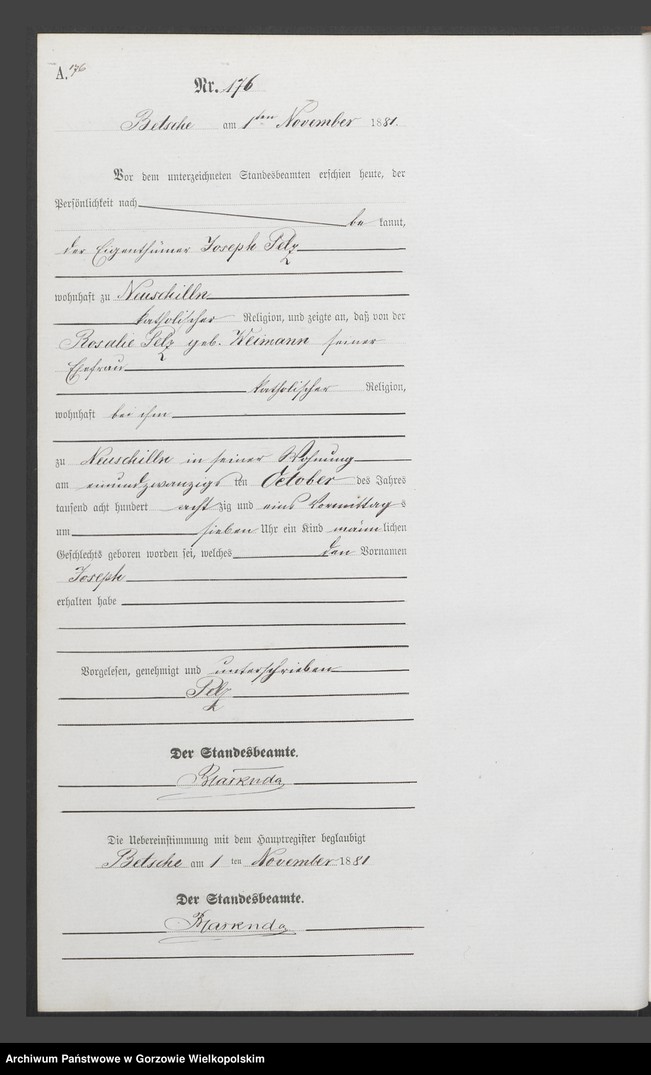 A. 176
Nr. 176
Betsche am 1ten November 1881.
Vor dem unterzeichneten Standesbeamten erschien heute, der
Persönlichkeit nach
be kannt,
der Eigenthümer Joseph Pelz
wohnhaft zu Neuschilln
katholischer Religion, und zeigte an, daß von der
Rosalie Pelz geb. Weimann seiner
Ehefrau
katholischer Religion,
wohnhaft bei ihm
zu Neuschilln in seiner Wohnung
am einundzwanzigs ten October des Jahres
tausend acht hundert acht zig und eins Vormittag s
um sieben Uhr ein Kind männ lichen
Geschlechts geboren worden sei, welches den Vornamen
Joseph
erhalten habe
Vorgelesen, genehmigt und unterschrieben
Pelz
Der Standesbeamte.
Die Uebereinstimmung mit dem Hauptregister beglaubigt
Betsche am 1 ten November 1881
Der Standesbeamte.
Archiwum Państwowe w Gorzowie Wielkopolskim